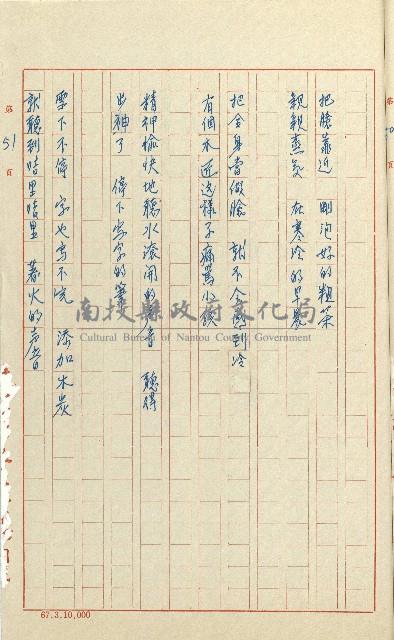 把臉靠近 剛泡好的粗茶
親親蒸气 在寒冷的早晨
把全身當做臉 就不会感到冷
有個木匠这樣子痛罵小鋲
精神愉快地聽水滚開的聲音 聽得
出神了 停下字字的筆
墨下不停 字也写不完 添加木炭
就聽到啨里啨里 着火的声音
第 51 頁
第 頁
南投縣政府文化局
Cultural Bureau of Nantou County Government
67.3.10,000